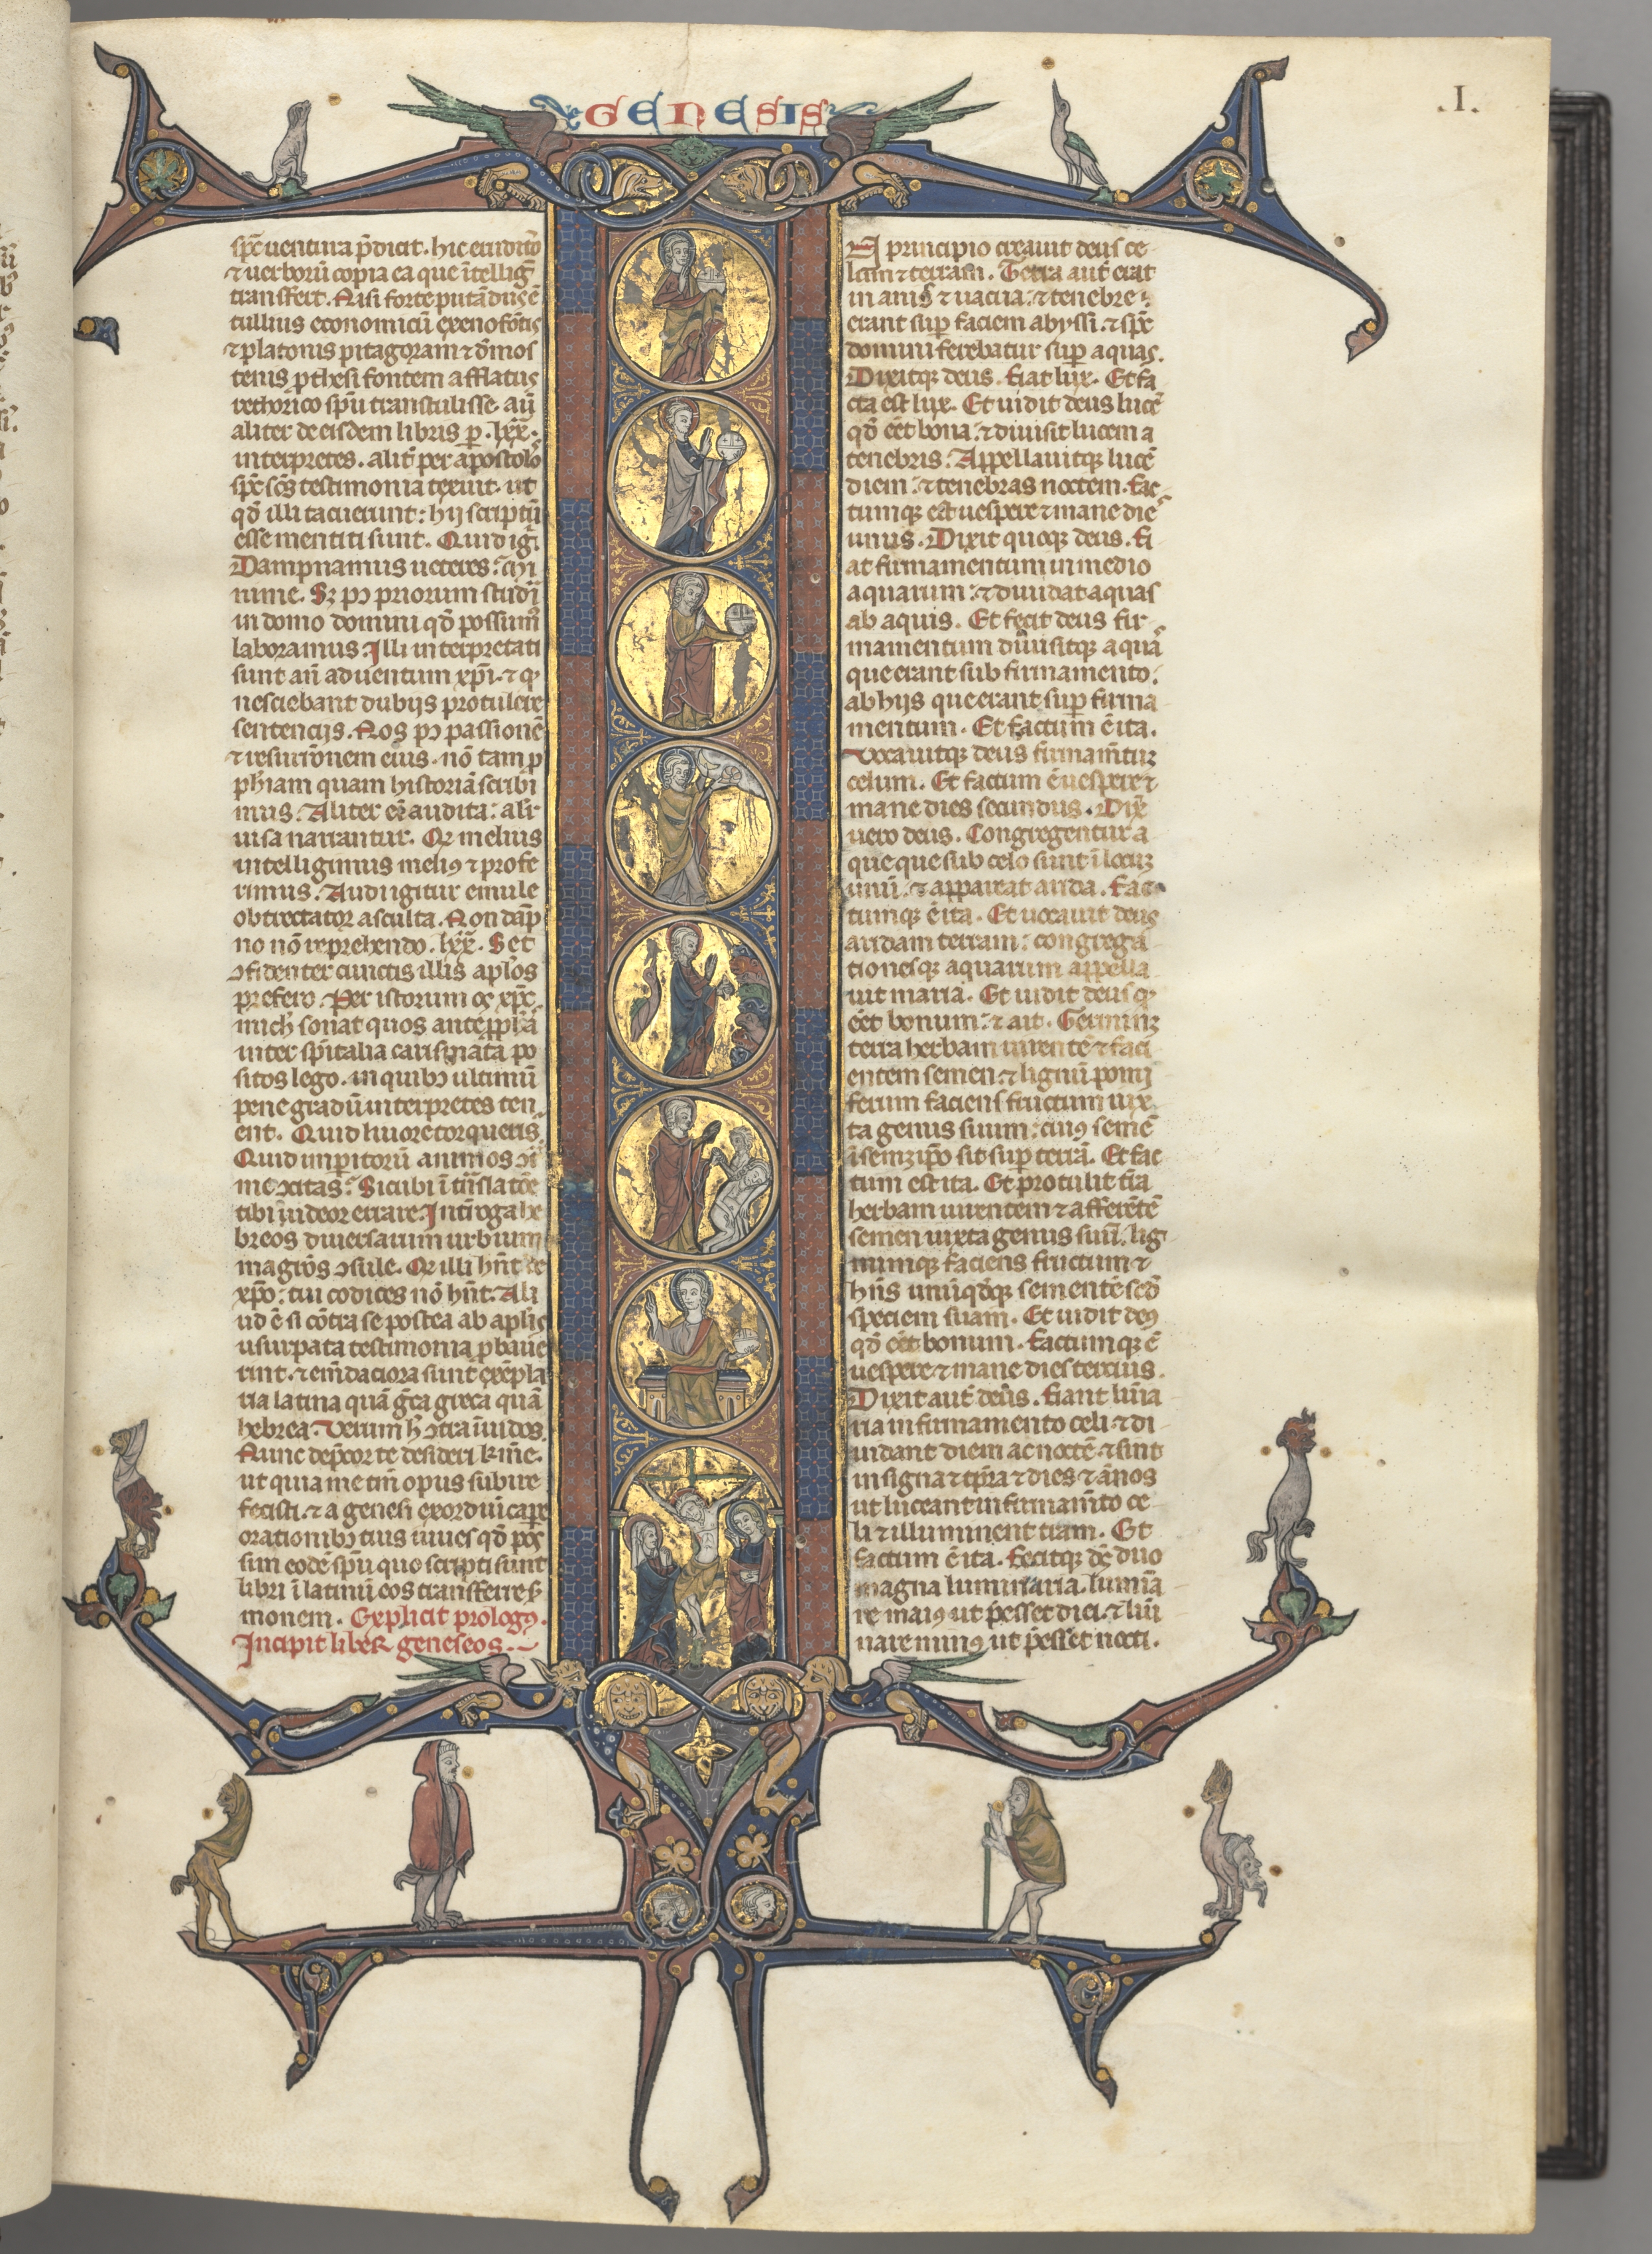 GENESIS
.I.
sp̄c uentura p̄dicit. hic eruditō
⁊ uerborū copia ea que ītelligit̄
transfert. Nisi forte putād' us ē
tullius economicū exenofōtis
⁊ platonis pitagoram ⁊ d̄mos
tenis p̄thesi fontem afflatus
rethorico sp̄u transtulisse. aū
aliter de eisdem libris p̄ .lxx.
interpretes. alit̄ per apostolos
sp̄c sc̄s testimonia texuit. ut
qd̄ illi tacuerunt: hij scriptū
esse mentiti sunt. Quid igit̄
Dampnamus ueteres: Mi
nime. Sꝫ pꝰ priorum studia
in domo domini qd̄ possumꝰ
laboramus. Illi interpretati
sunt añ aduentum xp̄i. ⁊ qd̄
nesciebant dubijs protulere
sentencijs. Nos pꝰ passionē
⁊ resurr̄onem eius. nō tam p̄
phiam quam historiā scribi
mus. Aliter eī audita: alit̄
uisa narrantur. Qd̄ melius
intelligimus meliꝰ ⁊ profe
rimus. Audi igitur emule
obtrectator asculta. Non dāp
no nō reprehendo .lxx. Set
ꝯfidenter cunctis illis ap̄los
prefero. Per istorum os xp̄c
michi sonat quos ante p̄ph̄as
inter sp̄italia carismata po
sitos lego. in quibꝰ ultimū
pene gradū interpretes ten
ent. Quid liuore torqueris.
Quid inp̄itorū animos ꝯt̄
me ꝯcitas. Sicubi ī trāslatōe
tibi uideor errare. Int̄roga he
breos diuersarum urbium
magr̄os ꝯsule. Qd̄ illi hn̄t de
xp̄o: tui codices nō hn̄t. Ali
ud ē si cōtra se postea ab ap̄lis
usurpata testimonia p̄baue
rint. ⁊ em̄daciora sunt exēpla
ria latina quā greca greca quā
hebrea. Verum h̄ ꝯtra īuidos.
Nunc dep̄cor te desideri k̄me.
ut quia me tm̄ opus subire
fecisti. ⁊ a genesi exordiū cape
orationibꝰ tuis iuues qd̄ pos
sim eodē sp̄u quo scripti sunt
libri ī latinū eos transferre s̄
monem. Explicit prologꝰ.
Incipit liber geneseos.
principio creauit deus ce
lum ⁊ terram. Terra aut̄ erat
inanis ⁊ uacua: ⁊ tenebre
erant sup̄ faciem abyssi. ⁊ sp̄c
domini ferebatur sup̄ aquas.
Dixitqꝫ deus. fiat lux. Et fa
cta est lux. Et uidit deus lucē
qd̄ eēt bona: ⁊ diuisit lucem a
tenebris. Appellauitqꝫ lucē
diem: ⁊ tenebras noctem. fac
tumqꝫ est uespere ⁊ mane dies
unus. Dixit quoqꝫ deus. fi
at firmamentum in medio
aquarum: ⁊ diuidat aquas
ab aquis. Et fecit deus fir
mamentum diuisitqꝫ aquas
que erant sub firmamento.
ab hijs que erant sup̄ firma
mentum. Et factum ē ita.
Vocauitqꝫ deus firmam̄tuꝫ
celum. Et factum ē uespere ⁊
mane dies secundus. Dix̄
uero deus. Congregentur a
que que sub celo sunt ī locuꝫ
unū: ⁊ appareat arida. fac
tumqꝫ ē ita. Et uocauit deus
aridam terram: congrega
tionesqꝫ aquarum appella
uit maria. Et uidit deus qd̄
eēt bonum: ⁊ ait. Germinꝫ
terra herbam uirentē ⁊ faci
entem semen: ⁊ lignū pomi
ferum faciens fructum iux
ta genus suum: cuiꝰ semē
ī semꝫ ip̄o sit sup̄ terrā. Et fac
tum est ita. Et protulit t̄ra
herbam uirentem ⁊ afferētē
semen iuxta genus suū. lig
numqꝫ faciens fructum ⁊
hn̄s unūqd̄qꝫ sementē secd̄
speciem suam. Et uidit deꝰ
qd̄ eēt bonum. factumqꝫ ē
uespere ⁊ mane dies tercius.
Dixit aut̄ deus. fiant lūia
ria in firmamento celi ⁊ di
uidant diem ac noctē. ⁊ sint
in signa ⁊ tp̄ra ⁊ dies ⁊ ānos
ut luceant in firmam̄to ce
li ⁊ illuminent t̄ram. Et
factum ē ita. fecitqꝫ ds̄ duo
magna luminaria. lumīa
re maiꝰ ut p̄esset diei. ⁊ lūi
nare minꝰ ut p̄esset nocti.